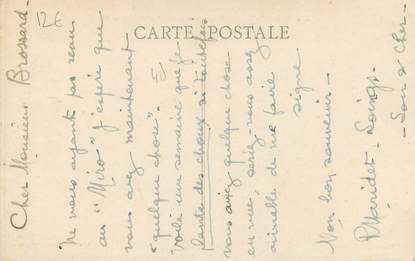 12€
CARTE POSTALE
Cher Monsieur Brossard -
Ne vous ayant pas revu
au "Miro" j'espère que
vous avez maintenant
"quelque chose" -
Voilà une semaine que je
plante des choux si toutefois
vous aviez quelque chose
en vue, seriez-vous assez
aimable de me faire
signe
Mon bon souvenir -
P. Maridet - Soings -
- Loir & Cher -